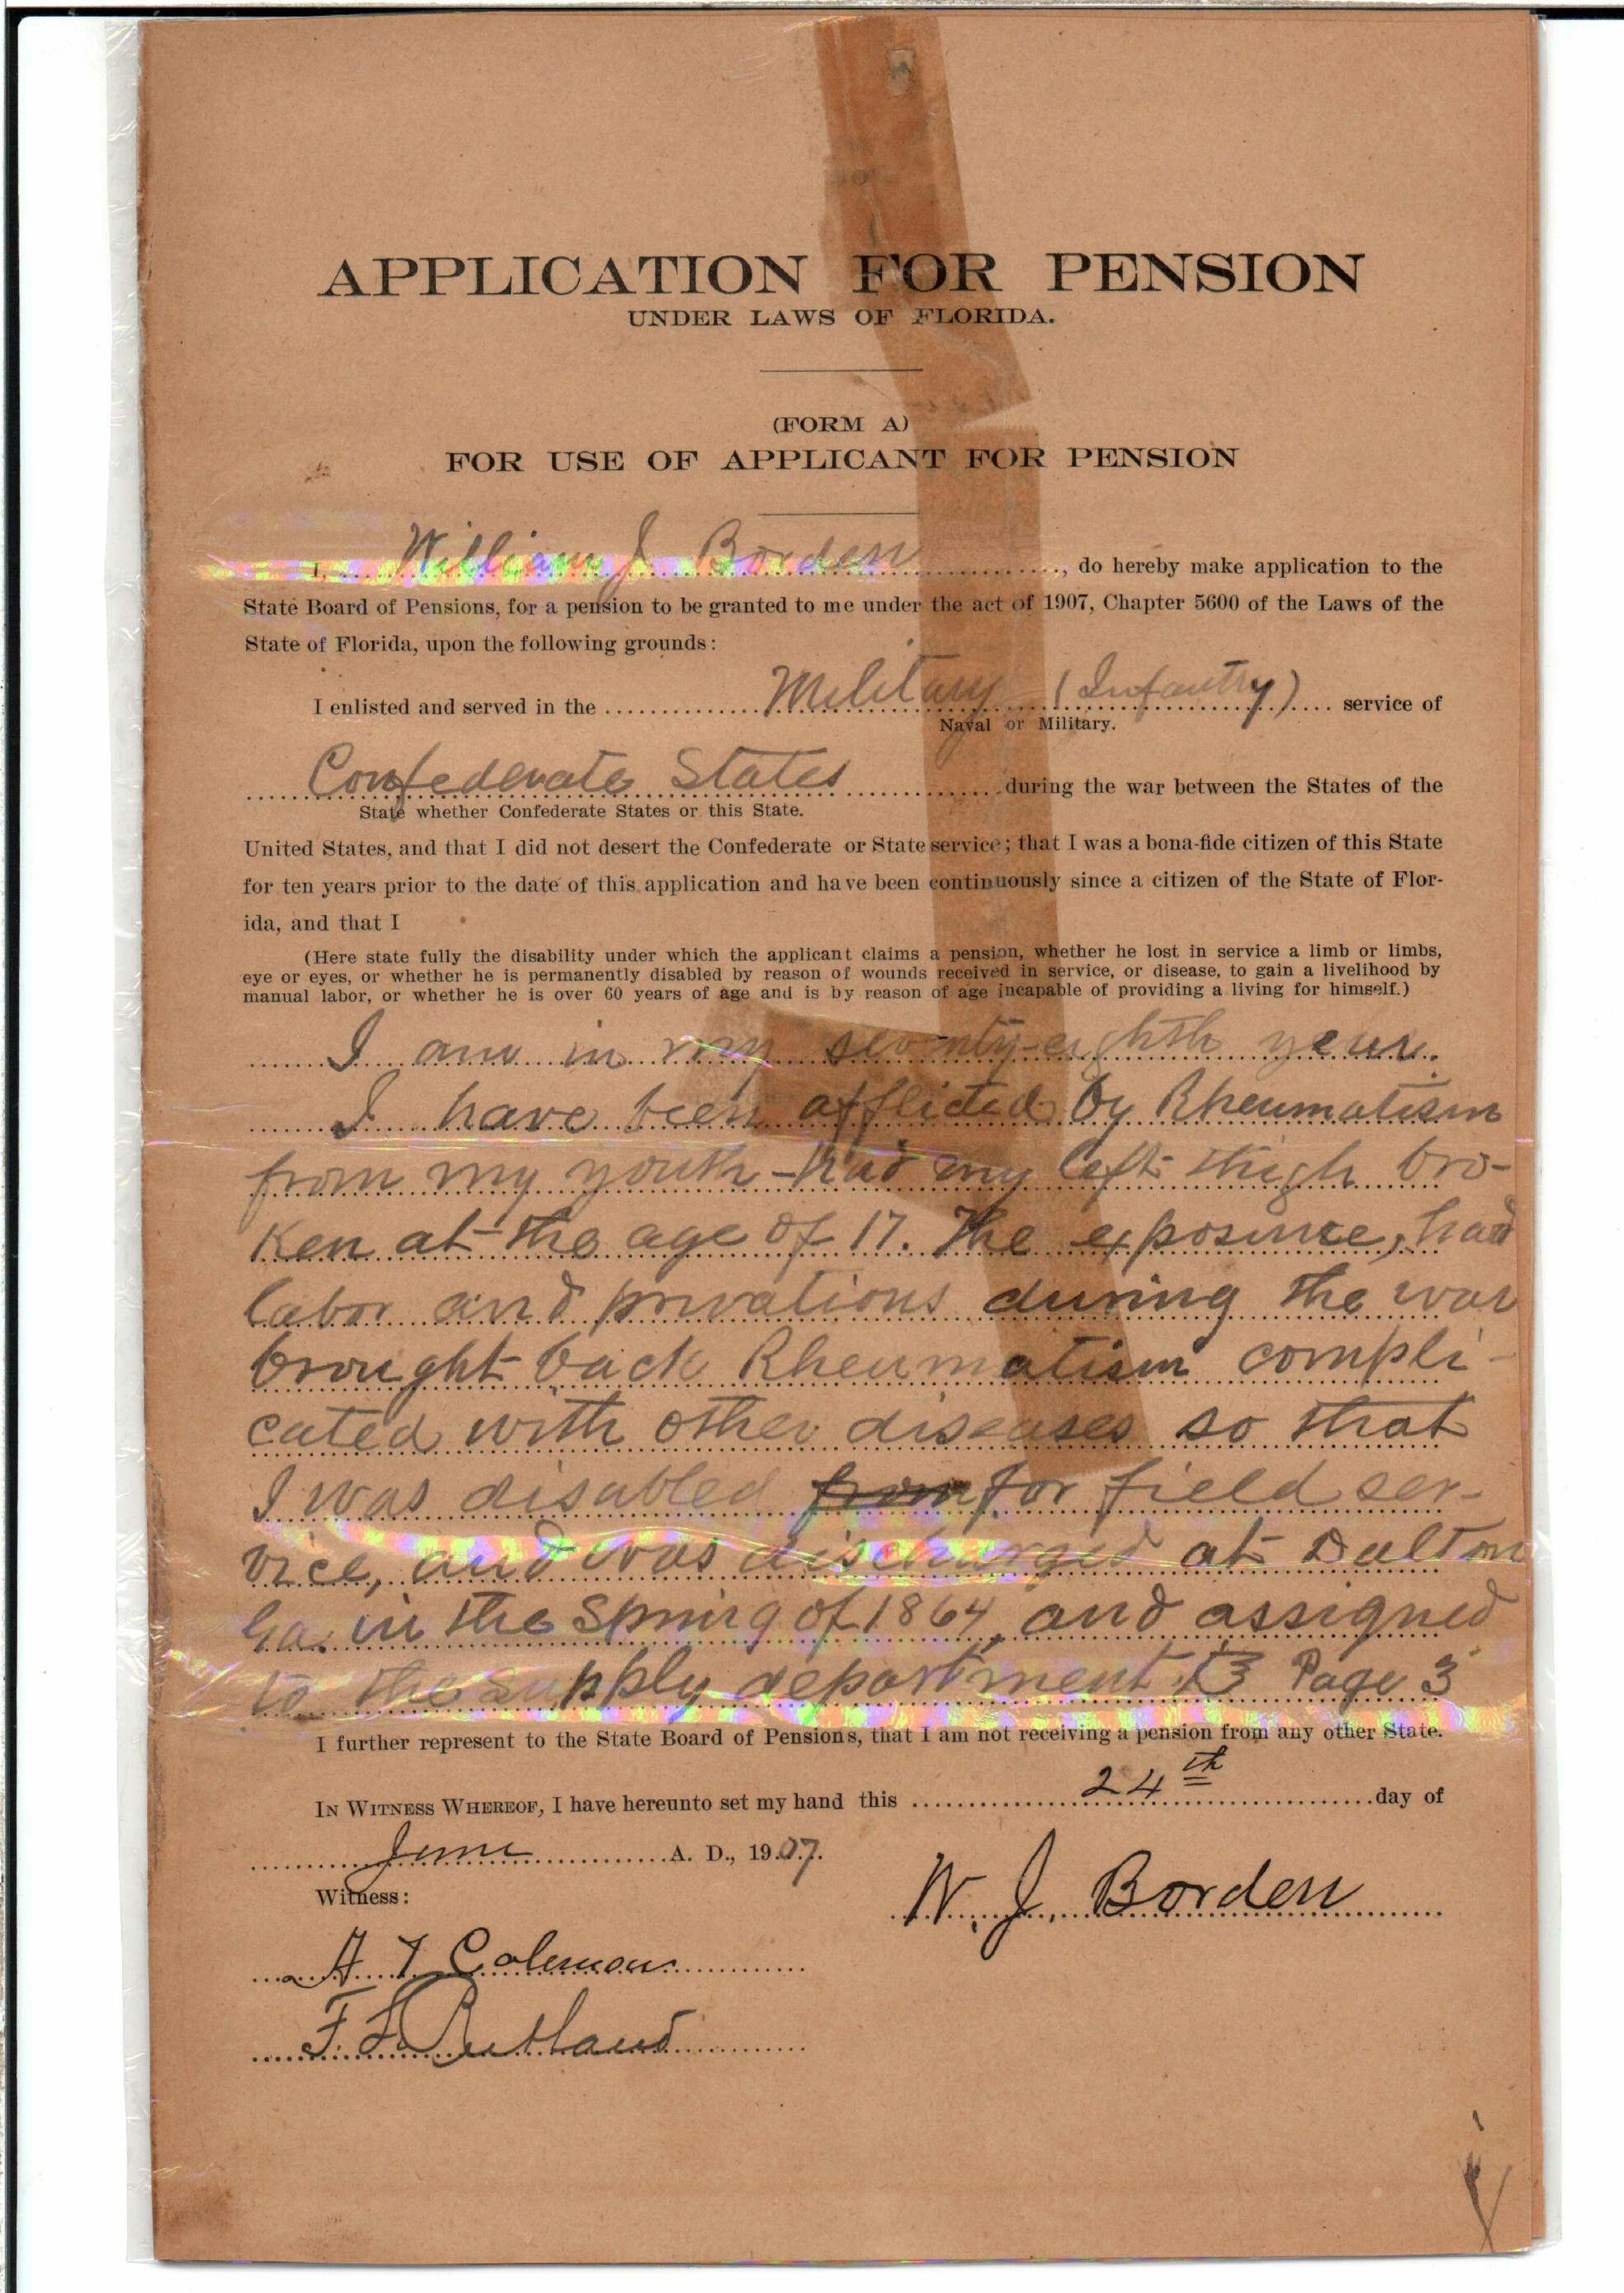 APPLICATION FOR PENSION
UNDER LAWS OF FLORIDA.
(FORM A)
FOR USE OF APPLICANT FOR PENSION
I, William J Borden, do hereby make application to the
State Board of Pensions, for a pension to be granted to me under the act of 1907, Chapter 5600 of the Laws of the
State of Florida, upon the following grounds:
I enlisted and served in the Military (Infantry) service of
Naval or Military.
Confederate States during the war between the States of the
State whether Confederate States or this State.
United States, and that I did not desert the Confederate or State service; that I was a bona-fide citizen of this State
for ten years prior to the date of this application and have been continuously since a citizen of the State of Flor-
ida, and that I
(Here state fully the disability under which the applicant claims a pension, whether he lost in service a limb or limbs,
eye or eyes, or whether he is permanently disabled by reason of wounds received in service, or disease, to gain a livelihood by
manual labor, or whether he is over 60 years of age and is by reason of age incapable of providing a living for himself.)
I am in my seventy-eighth year.
I have been afflicted by Rheumatism
from my youth - had my left thigh bro-
ken at the age of 17. The exposure, had
labor and privations during the war
brought back Rheumatism compli-
cated with other diseases so that
I was disabled from for field ser-
vice, and was discharged at Dalton
Ga. in the Spring of 1864, and assigned
to the supply department Page 3
I further represent to the State Board of Pensions, that I am not receiving a pension from any other State.
IN WITNESS WHEREOF, I have hereunto set my hand this 24th day of
June A. D., 1907.
Witness:
W. J. Borden
A Coleman
F. L Rutland